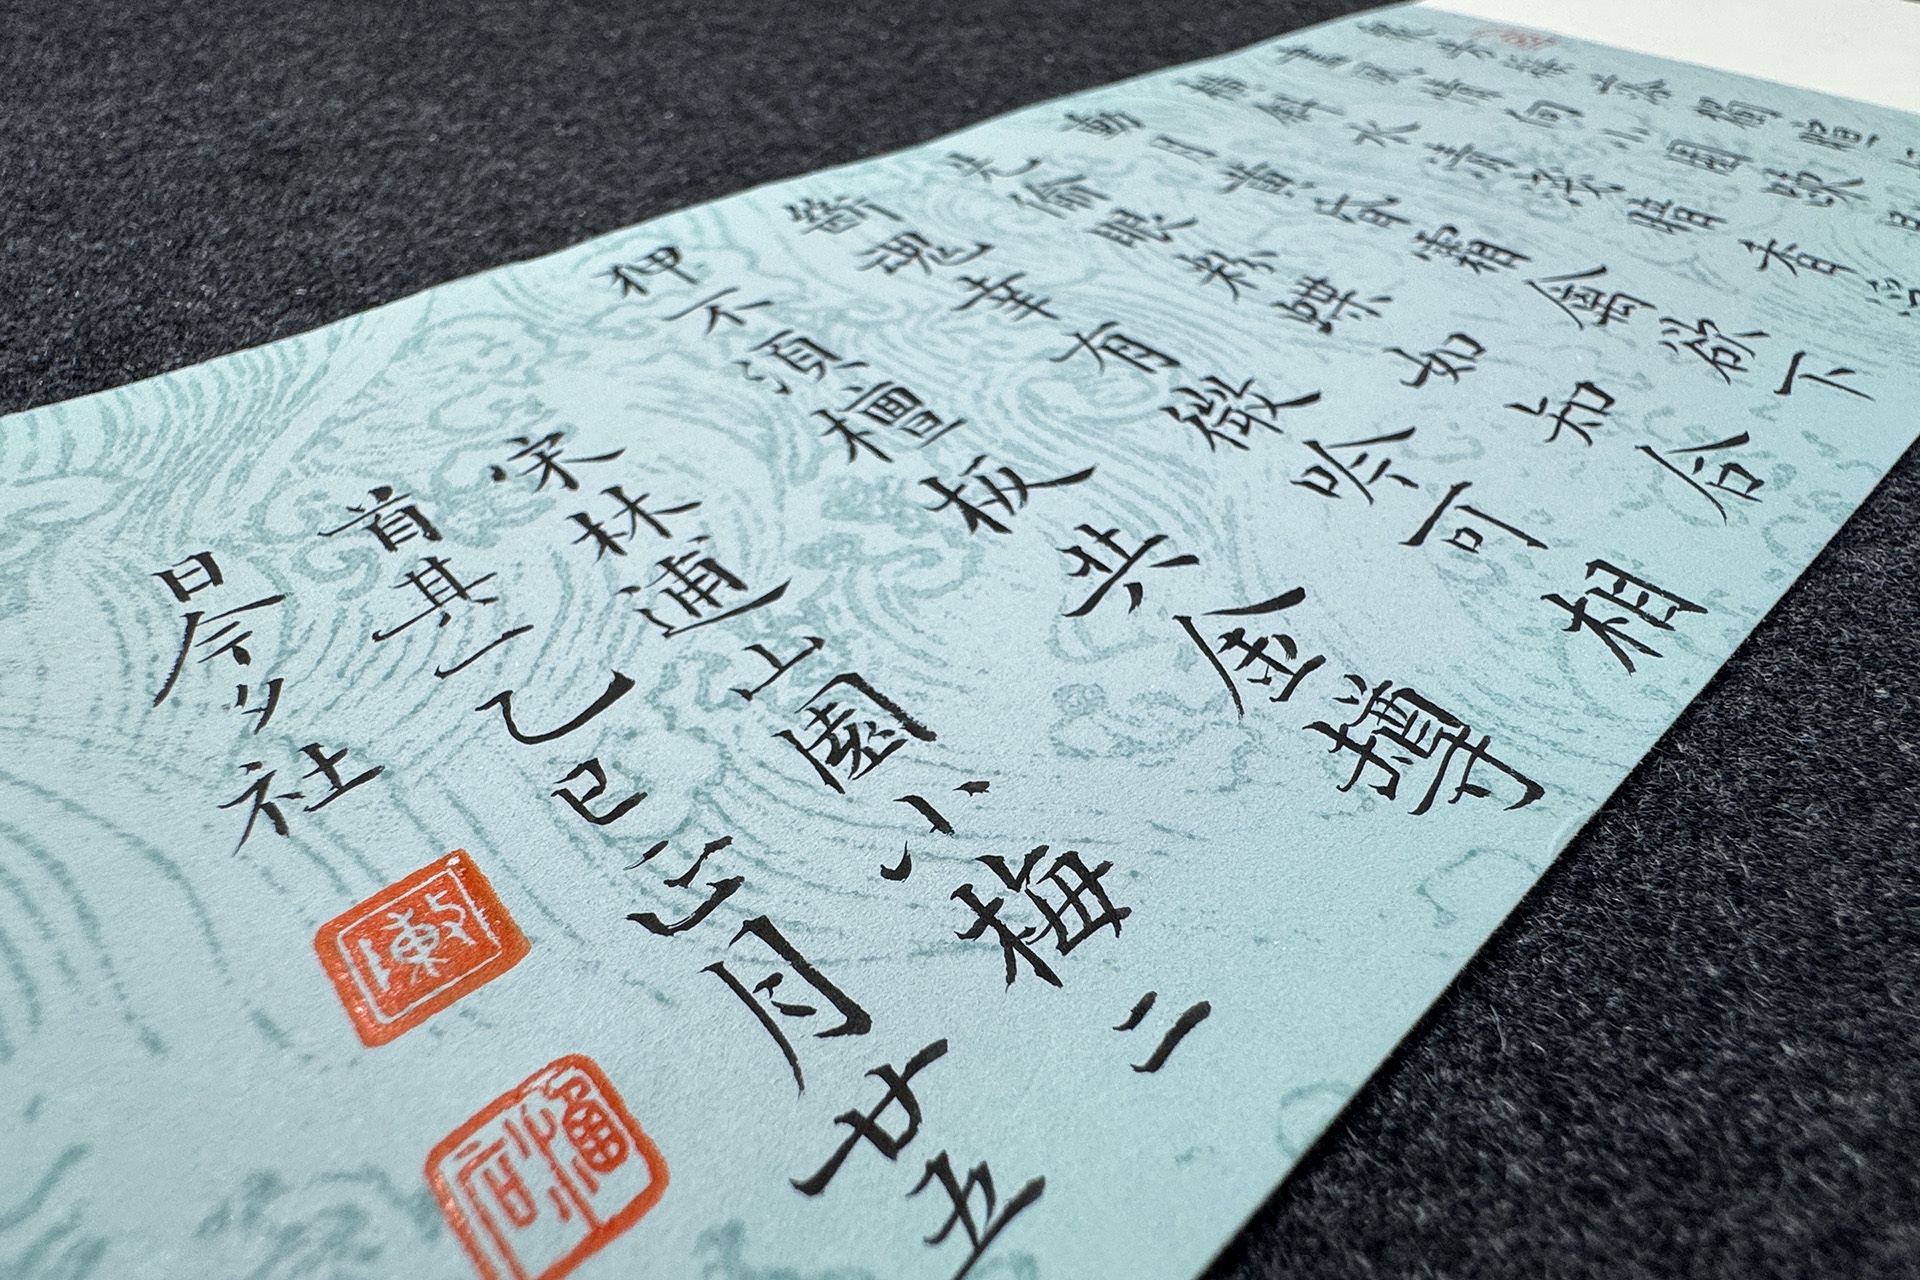 眾芳搖落獨暄
盡風情向小園疎
橫斜水清淺暗香浮
動月黃昏霜禽欲下
先偷眼粉蝶如知合
斷魂幸有微吟可相
狎不須檀板共金樽
宋林逋山園小梅二
首其一乙巳三月廿五
日今夕社